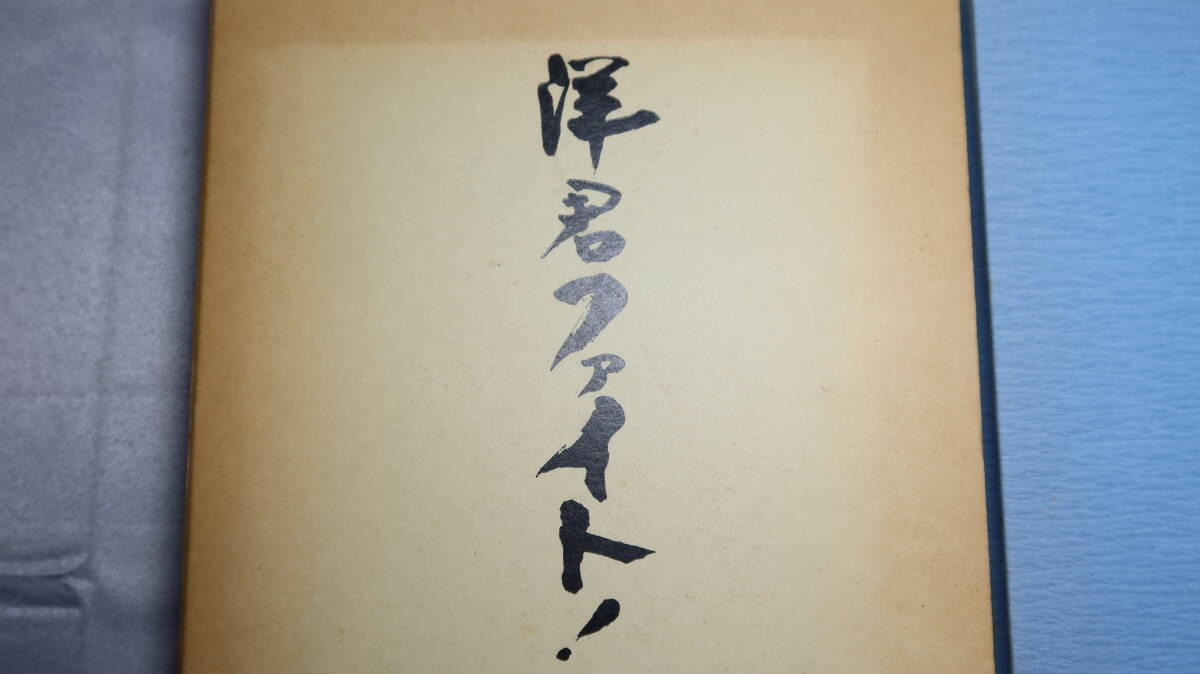 洋君ファイト!